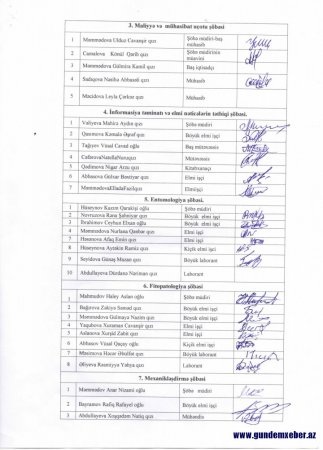 3. Maliyyə və mühasibat uçotu şöbəsi
1 Məmmədova Ulduz Cavanşir qızı Şöbə müdiri-baş mühasib
2 Camalova Könül Qərib qızı Şöbə müdirinin müavini
3 Məmmədova Gülmirə Kamil qızı Baş iqtisadçı
4 Sadıqova Nəsibə Abbasəli qızı Mühasib
5 Məcidova Leyla Çərkəz qızı Mühasib
4. İnformasiya təminatı və elmi nəticələrin tətbiqi şöbəsi.
1 Vəliyeva Mahirə Aydın qızı Şöbə müdiri
2 Qasımova Kəmalə Əşrəf qızı Böyük elmi işçi
3 Tağıyev Vüsal Cavad oğlu Baş mütəxəssis
4 CəfərovaNatellaNaruqızı Mütəxəssis
5 Qədimova Nigar Arzu qızı Kitabxanaçı
6 Abbasova Gülşər Bəxtiyar qızı Elmi işçi
7 MəmmədovaElladaFazilqızı Elmi işçi
5. Entomologiya şöbəsi.
1 Hüseynov Kazım Qərəkişi oğlu Şöbə müdiri
2 Novruzova Rəna Şahniyar qızı Böyük elmi işçi
3 İbrahimov Ceyhun Elxan oğlu Böyük elmi işçi
4 Məmmədova Nurlana Qənbər qızı Elmi işçi
7 Həsənova Afaq Emin qızı Elmi işçi
8 Hüseynova Aytəkin Ramiz qızı Kiçik elmi işçi
9 Seyidova Günəş Muxan qızı Böyük laborant
10 Abdullayeva Dürdanə Nəriman qızı Laborant
6. Fitopatologiya şöbəsi
1 Mahmudov Haley Aslan oğlu Şöbə müdiri
2 Bağırova Zəkiyə Səməd qızı Böyük elmi işçi
3 Məmmədova Gülmayə Nazim qızı Böyük elmi işçi
4 Yaqubova Xuraman Cavanşir qızı Elmi işçi
5 Aslanova Xurşid Zahir qızı Elmi işçi
6 Abbasov Vüsal Qaçay oğlu Kiçik elmi işçi
7 Məsimova Həcər Əhəlfət qızı Böyük laborant
8 Əliyeva Rəsmiyyə Yəhya qızı Laborant
7. Mexanikləşdirmə şöbəsi
1 Məmmədov Anar Nizami oğlu Şöbə müdiri
2 Bayramov Rafiq Rəfayel oğlu Böyük elmi işçi
3 Abdullayeva Xoşqədəm Natiq qızı Mühəndis
www.gundemxeber.az